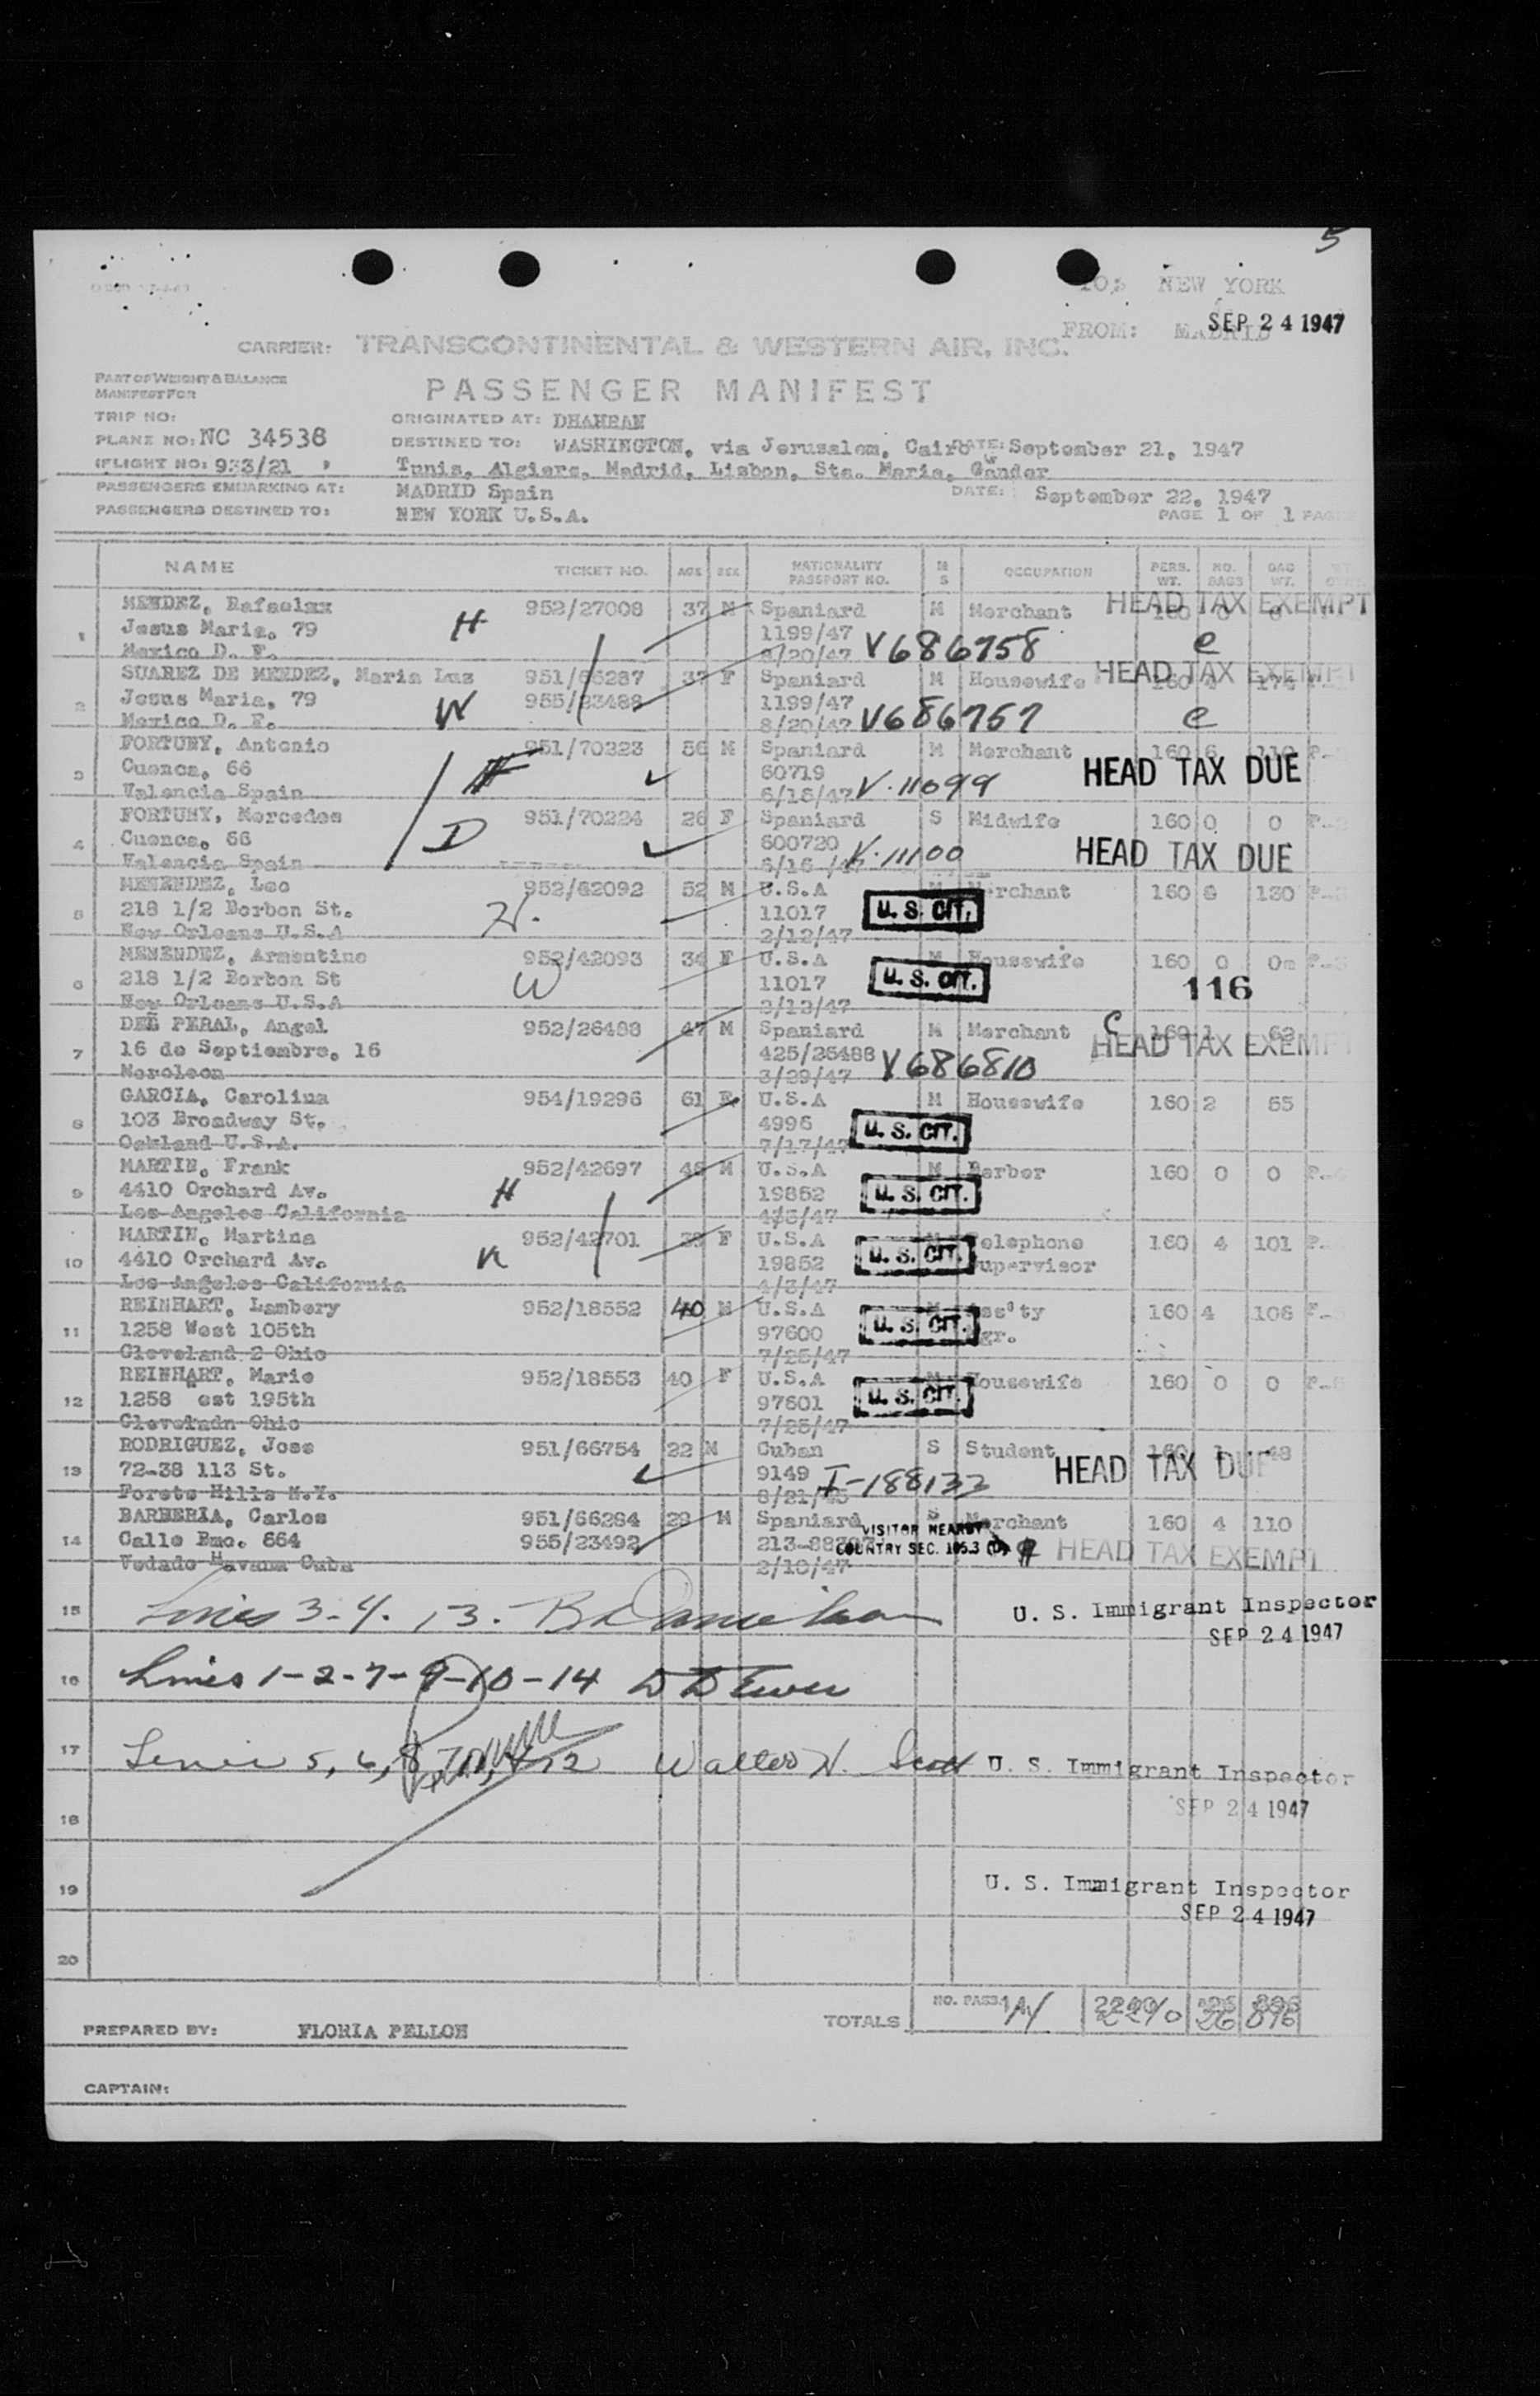 5
TO: NEW YORK
FROM: MADRID
SEP 24 1947
CARRIER: TRANSCONTINENTAL & WESTERN AIR, INC.
PART OF WEIGHT & BALANCE
MANIFEST FOR
PASSENGER MANIFEST
TRIP NO: ORIGINATED AT: DHAHRAN
PLANE NO: NC 34538 DESTINED TO: WASHINGTON, via Jerusalem, Cairo DATE: September 21, 1947
(FLIGHT NO: 933/21 ) Tunis, Algiers, Madrid, Lisbon, Sta. Maria, Gander
PASSENGERS EMBARKING AT: MADRID Spain DATE: September 22, 1947
PASSENGERS DESTINED TO: NEW YORK U.S.A. PAGE 1 OF 1 PAGE
NAME TICKET NO. AGE SEX NATIONALITY PASSPORT NO. M S OCCUPATION PERS. WT. NO. BAGS BAG WT.
MENDEZ, Rafaelxx 952/27008 37 M Spaniard M Merchant 160 HEAD TAX EXEMPT
1 Jesus Maria, 79 H 1199/47 V686758 e
Mexico D. F. 8/20/47
SUAREZ DE MENDEZ, Maria Luz 951/66287 37 F Spaniard M Housewife 160 4 174 HEAD TAX EXEMPT
2 Jesus Maria, 79 W 955/23488 1199/47
Mexico D. F. 8/20/47 V686757 e
FORTUNY, Antonio 951/70223 56 M Spaniard M Merchant 160 6 110 P-
3 Cuenca, 66 H 60719 HEAD TAX DUE
Valencia Spain 6/16/47 V-11099
FORTUNY, Mercedes 951/70224 26 F Spaniard S Midwife 160 0 0 P-2
4 Cuenca, 66 D 600720 HEAD TAX DUE
Valencia Spain 6/16 /47 V-11100
MENENDEZ, Leo 952/62092 52 M U.S.A M Merchant 160 8 130 P-
5 218 1/2 Borbon St. H. 11017 U. S. CIT.
New Orleans U.S.A 2/12/47
MENENDEZ, Armentine 952/42093 34 F U.S.A M Housewife 160 0 0m P-3
6 218 1/2 Borbon St W 11017 U. S. CIT. 116
New Orleans U.S.A 2/12/47
DEE PERAL, Angel 952/26488 47 M Spaniard M Merchant C 160 1 62
7 16 de Septiembre, 16 425/26488 V686810 HEAD TAX EXEMPT
Moroleon 3/29/47
GARCIA, Carolina 954/19296 61 F U.S.A M Housewife 160 2 55
8 103 Broadway St. 4996 U. S. CIT.
Oakland U.S.A. 7/17/47
MARTIN, Frank 952/42697 48 M U.S.A M Barber 160 0 0 P-
9 4410 Orchard Av. H 19852 U. S. CIT.
Los Angeles California 4/3/47
MARTIN, Martina 952/42701 38 F U.S.A Telephone 160 4 101 P-
10 4410 Orchard Av. W 19852 U. S. CIT. Supervisor
Los Angeles California 4/3/47
REINHART, Lambery 952/18552 40 M U.S.A M Ass'ty 160 4 106 P-
11 1258 West 105th 97600 U. S. CIT. Mgr.
Cleveland 2 Ohio 7/25/47
REINHART, Marie 952/18553 40 F U.S.A M Housewife 160 0 0 P-
12 1258 est 195th 97601 U. S. CIT.
Cleveladn Ohio 7/25/47
RODRIGUEZ, Jose 951/66754 22 M Cuban S Student 160 1 48
13 72-38 113 St. 9149 I-188132 HEAD TAX DUE
Forets Hills N.Y.
BARBERIA, Carlos 951/66284 29 M Spaniard S Merchant 160 4 110
14 Calle Bmo. 664 955/23492 VISITOR NEARBY COUNTRY SEC. 105.3 HEAD TAX EXEMPT
Vedado Havana Cuba 2/10/47
15 Lines 3-4. 13. U. S. Immigrant Inspector
SEP 24 1947
16 Lines 1-2-7-9-10-14
17 Lines 5, 6, 8 Walter H. Scott U. S. Immigrant Inspector
18 SEP 24 1947
19 U. S. Immigrant Inspector
SEP 24 1947
20
TOTALS NO. PASS. 14 2240 26 896
PREPARED BY: FLORIA PELLOH
CAPTAIN: